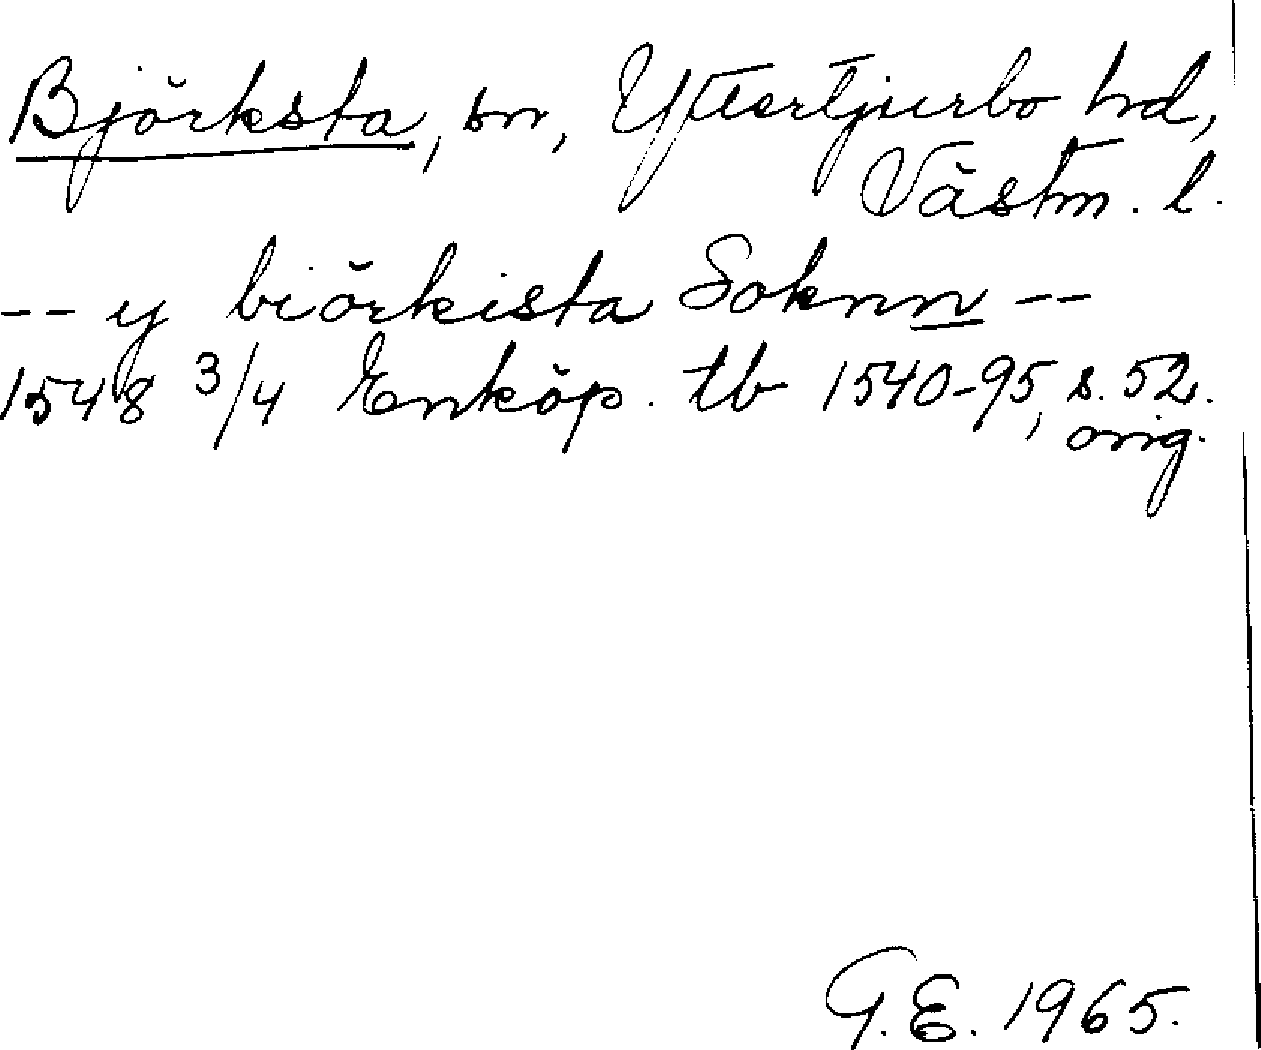 Björksta, sn, Yttertjurbo hd,
Västm. l.
-- y biörkista Soknn --
1548 3/4 Enköp. tb 1540-95, s. 52.
orig.
G.E. 1965.